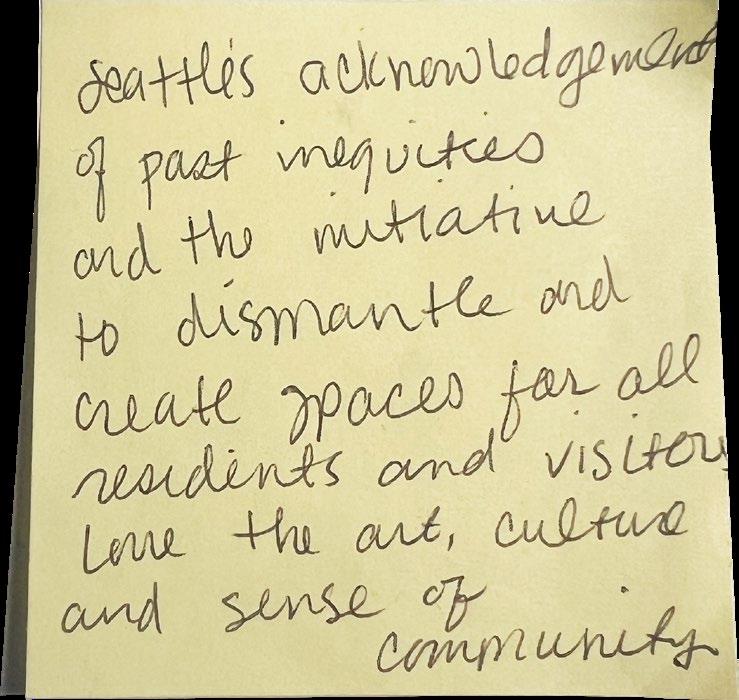 Seattle's acknowledgement
of past inequities
and the initiative
to dismantle and
create spaces for all
residents and visitors
Love the art, culture
and sense of
community